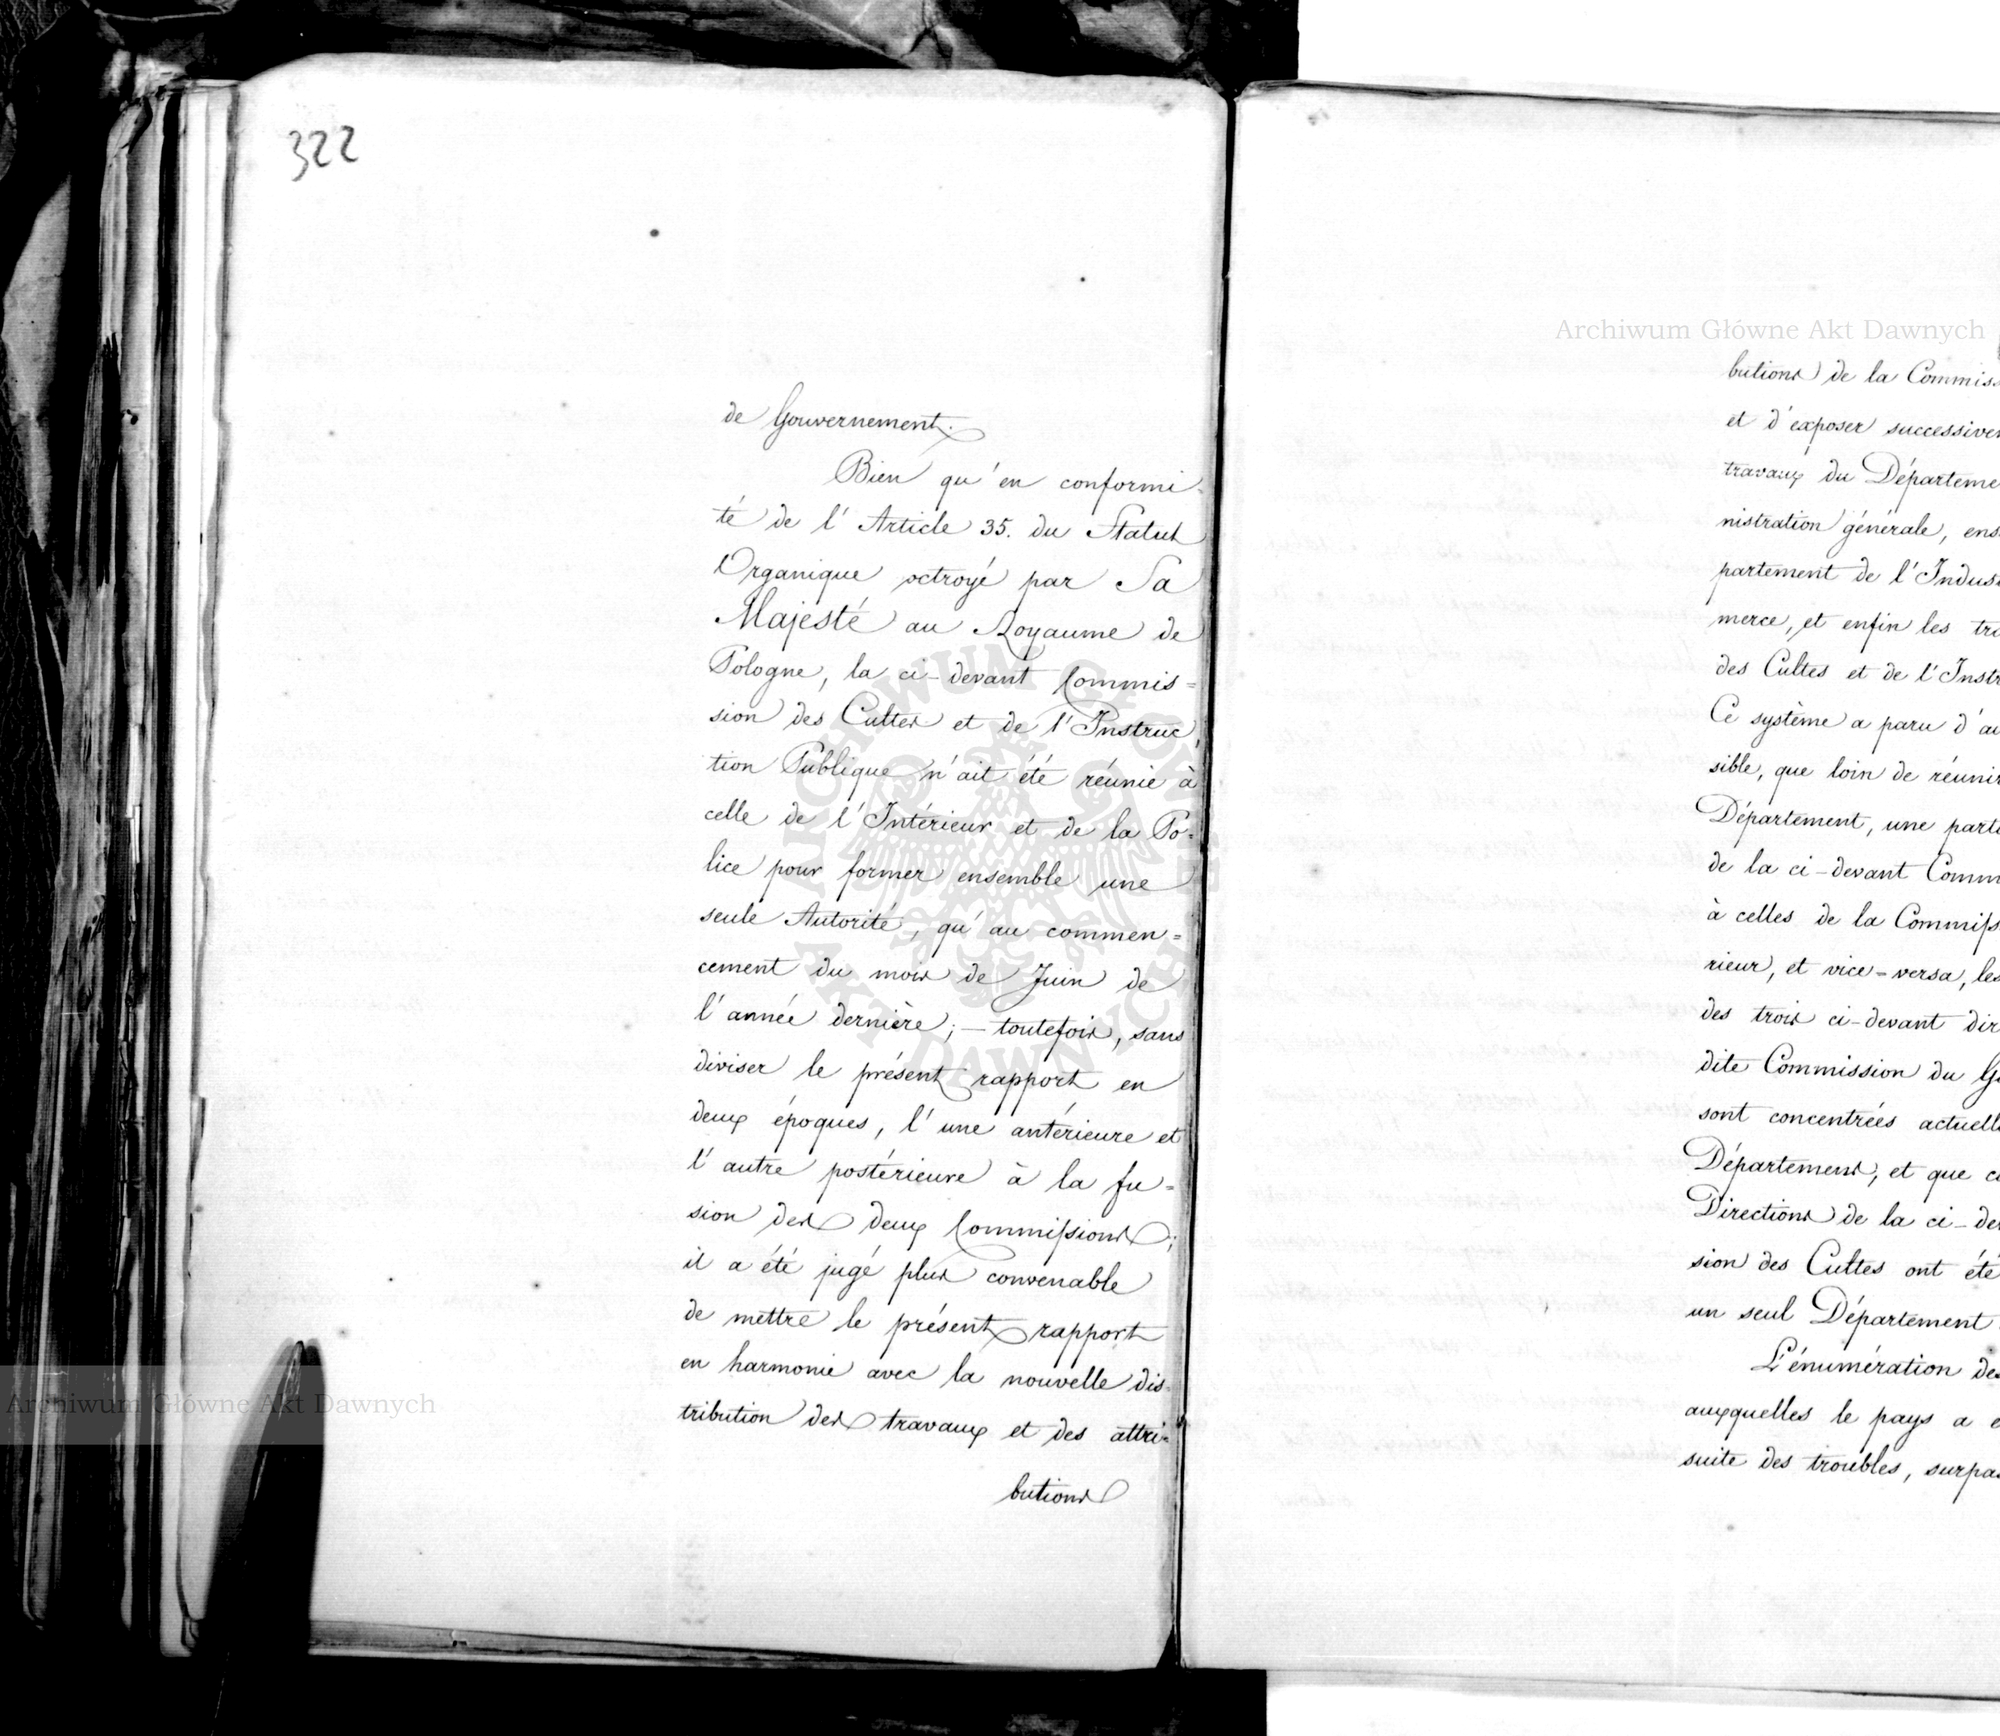 322
de Gouvernement.
Bien qu'en conformi-
té de l'Article 35. du Statut
Organique octroyé par Sa
Majesté au Royaume de
Pologne, la ci-devant Commis=
sion des Cultes et de l'Instruc,
tion Publique n'ait été réunie à
celle de l'Intérieur et de la Po=
lice pour former ensemble une
seule Autorité, qu'au commen=
cement du mois de Juin de
l'année dernière; — toutefois, sans
diviser le présent rapport en
deux époques, l'une antérieure et
l'autre postérieure à la fu=
sion des deux Commissions;
il a été jugé plus convenable
de mettre le présent rapport
en harmonie avec la nouvelle dis=
tribution des travaux et des attri=
butions
Archiwum Główne Akt Dawnych
butions de la Commis
et d'exposer successive
travaux du Départeme
nistration générale, ens
partement de l'Indus
merce, et enfin les tr
des Cultes et de l'Inst
Ce système a paru d'au
sible, que loin de réunir
Département, une parti
de la ci-devant Comm
à celles de la Commiss
rieur, et vice-versa, les
des trois ci-devant dir
dite Commission du G
sont concentrées actuell
Départemens, et que c
Directions de la ci-de
sion des Cultes ont été
un seul Département
L'énumération de
auxquelles le pays a e
suite des troubles, surpa
Archiwum Główne Akt Dawnych
ARCHIWUM GŁÓWNE AKT DAWNYCH